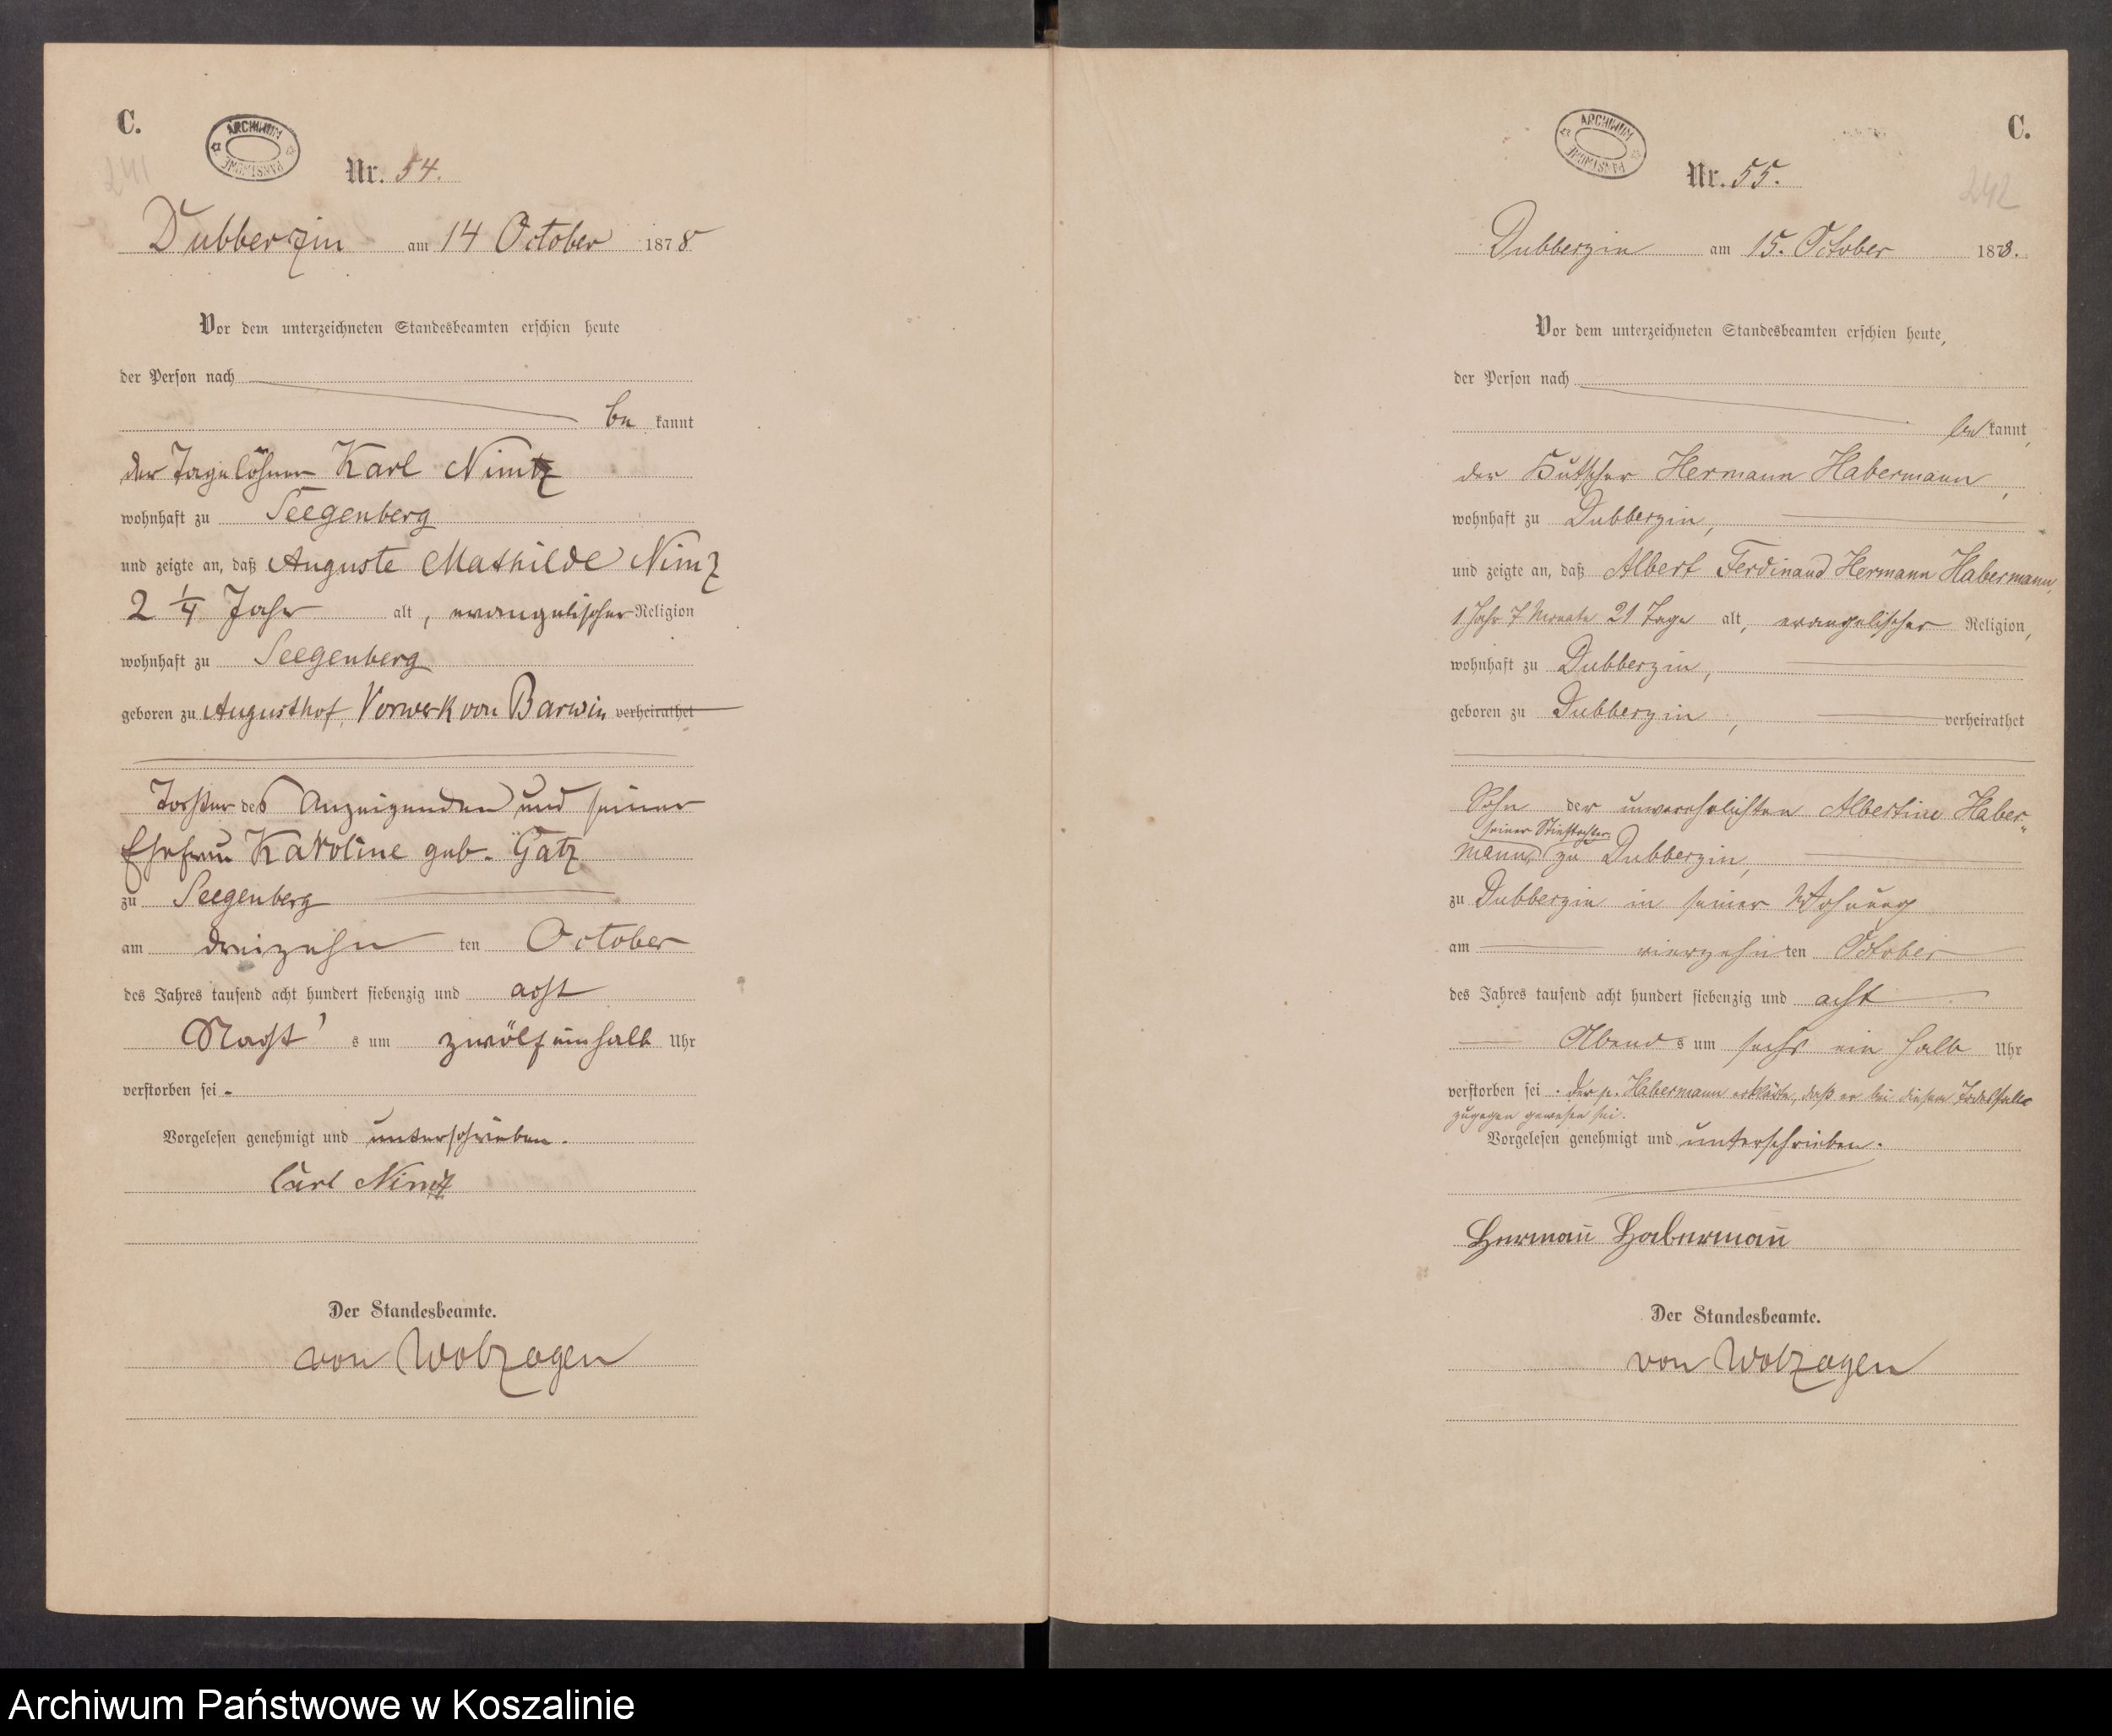 C.
ARCHIWUM PAŃSTWOWE
241
Nr. 54.
Dubberzin am 14 October 1878
Vor dem unterzeichneten Standesbeamten erschien heute
der Person nach
be kannt
der Tagelöhner Karl Nimtz
wohnhaft zu Seegenberg
und zeigte an, daß Auguste Mathilde Nimz
2 1/4 Jahr alt, evangelischer Religion
wohnhaft zu Seegenberg
geboren zu Augusthof, Vorwerk von Barwin verheirathet
Tochter des Anzeigenden und seiner
Ehefrau Karoline geb. Gatz
zu Seegenberg
am dreizehn ten October
des Jahres tausend acht hundert siebenzig und acht
Nacht's um zwölf einhalb Uhr
verstorben sei.
Vorgelesen genehmigt und unterschrieben.
Carl Nimtz
Der Standesbeamte.
von Wolzogen
C.
ARCHIWUM PAŃSTWOWE
242
Nr. 55.
Dubberzin am 15. October 1878.
Vor dem unterzeichneten Standesbeamten erschien heute,
der Person nach
be kannt,
der Hermann Habermann,
wohnhaft zu Dubberzin,
und zeigte an, daß Albert Ferdinand Hermann Habermann,
1 Jahr 7 Monate 21 Tage alt, evangelischer Religion,
wohnhaft zu Dubberzin,
geboren zu Dubberzin, verheirathet
Sohn der unverehelichten Albertine Haber-
seiner Stieftochter
mann, zu Dubberzin,
zu Dubberzin in seiner Wohnung
am vierzehn ten October
des Jahres tausend acht hundert siebenzig und acht
Abends um sechs ein halb Uhr
verstorben sei. Der p. Habermann erklärte, daß er bei diesem Todesfalle
zugegen gewesen sei.
Vorgelesen genehmigt und unterschrieben.
Herman̄ Haberman̄
Der Standesbeamte.
von Wolzogen
Archiwum Państwowe w Koszalinie